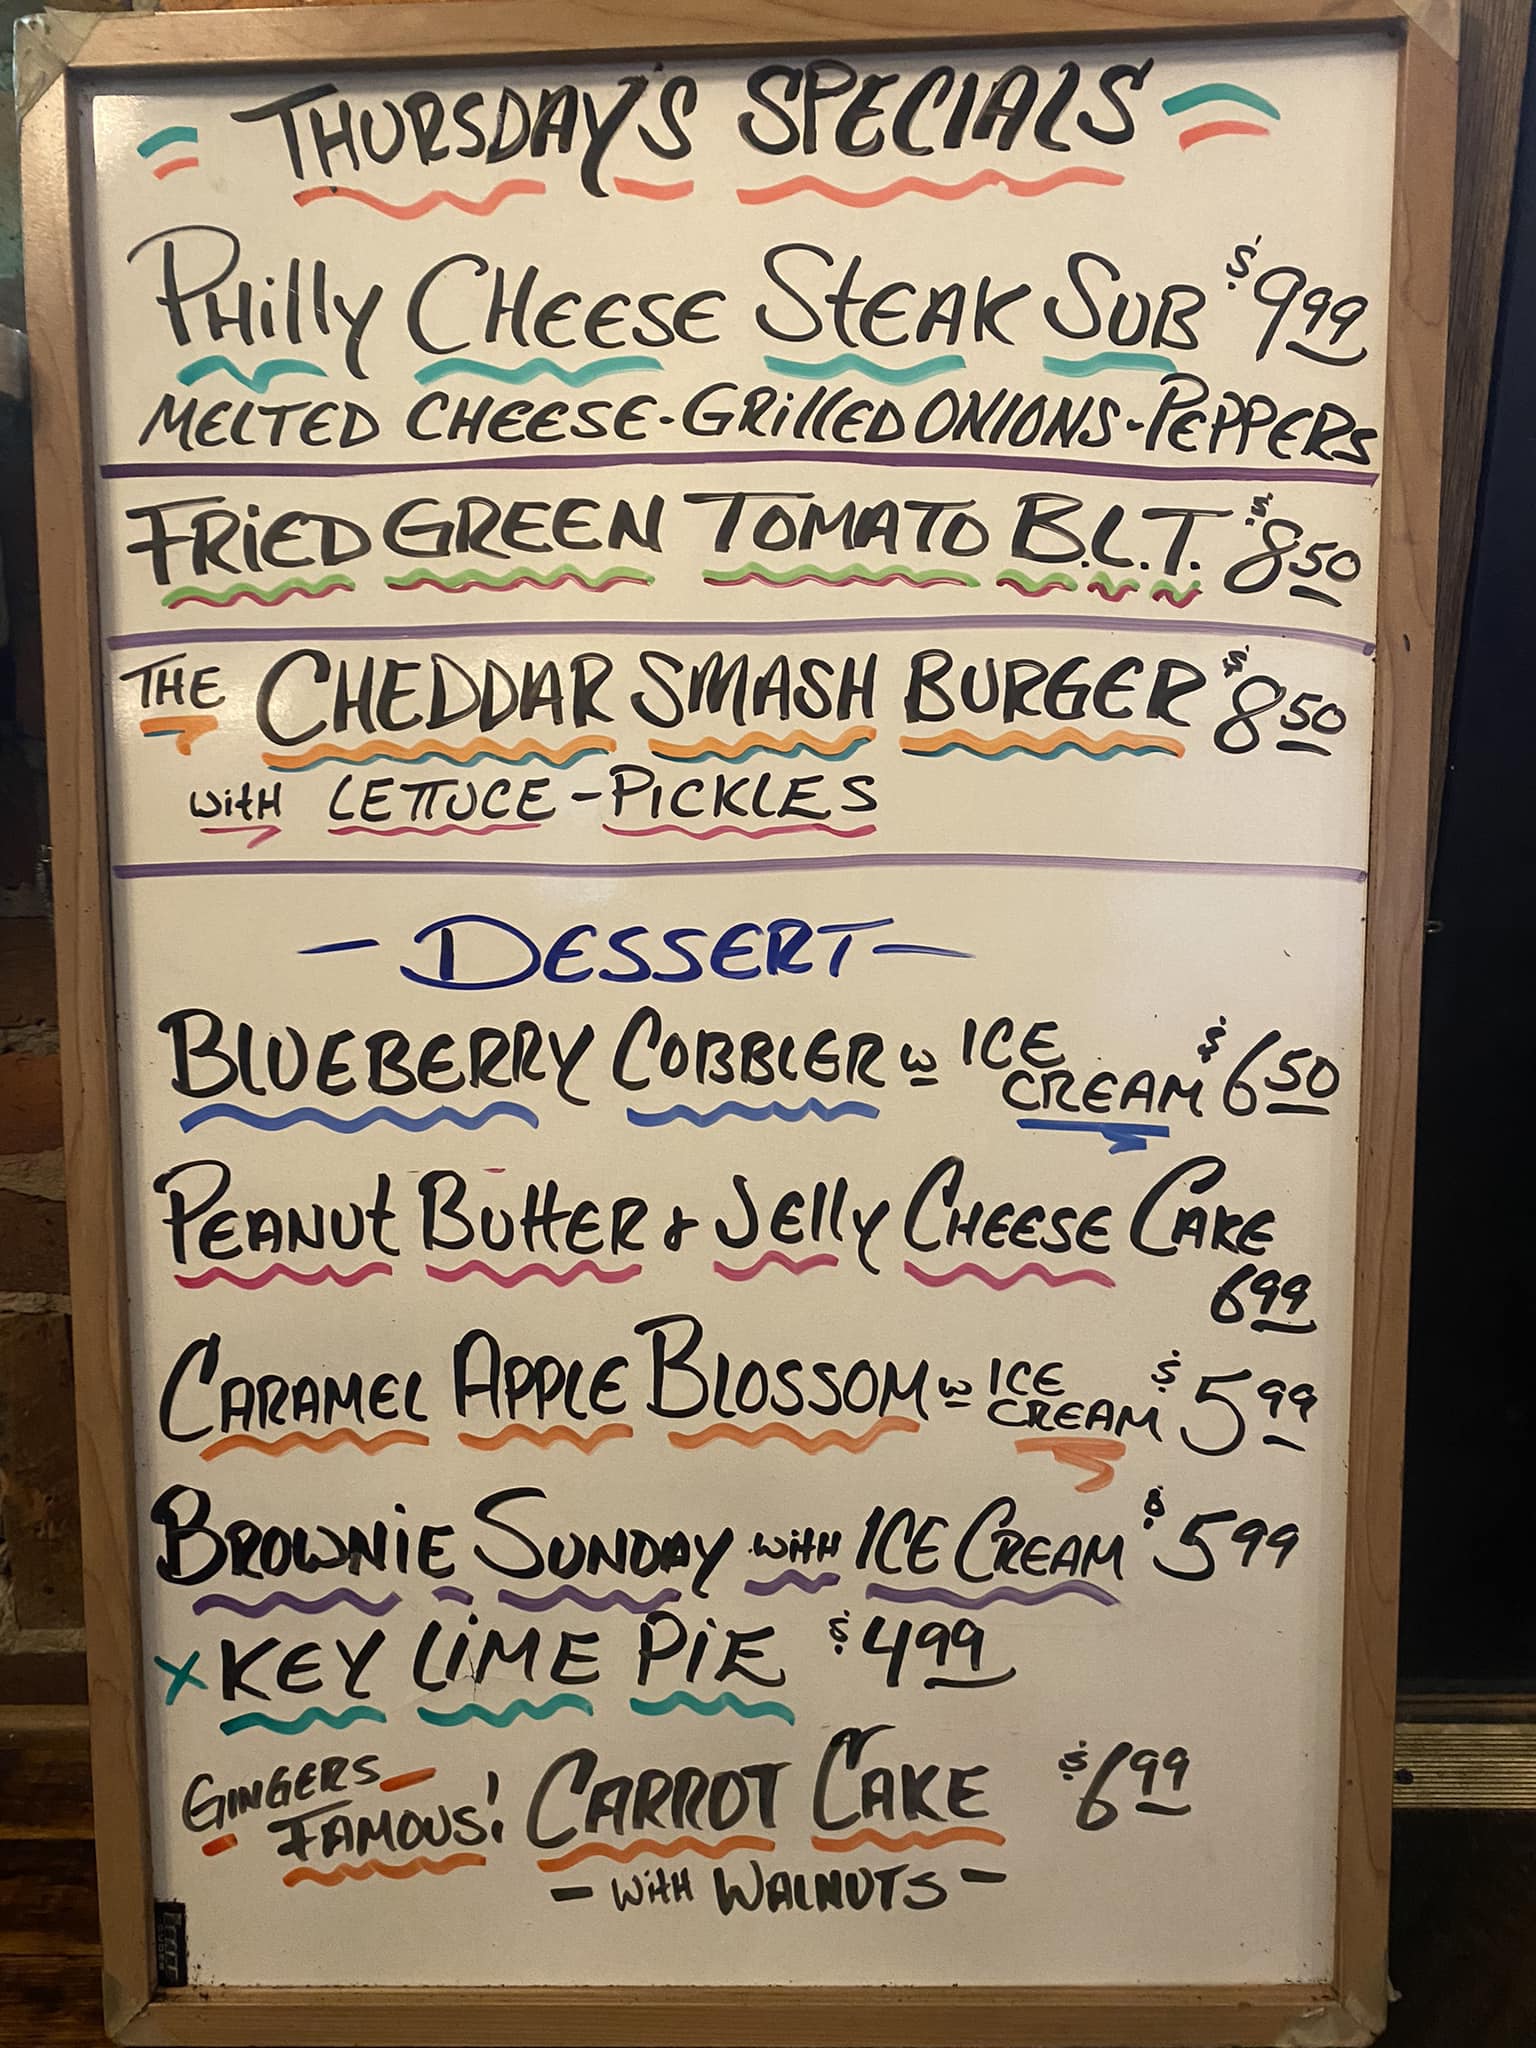 THURSDAY'S SPECIALS
PHilly CHEESE STEAK SUB $9.99
MELTED CHEESE-GRillED ONIONS-PEPPERS
FRiED GREEN TOMATO B.L.T. $8.50
THE CHEDDAR SMASH BURGER $8.50
WitH LETTUCE - PICKLES
- DESSERT -
BLUEBERRY COBBLER w ICE CREAM $6.50
PEANUt BUttER & JElly CHEESE CAKE
6.99
CARAMEL APPLE BLOSSOM w ICE CREAM $5.99
BROWNIE SUNDAY WitH ICE CREAM $5.99
x KEY LiME PiE $4.99
GINGERS FAMOUS! CARROT CAKE $6.99
- WitH WALNUTS -